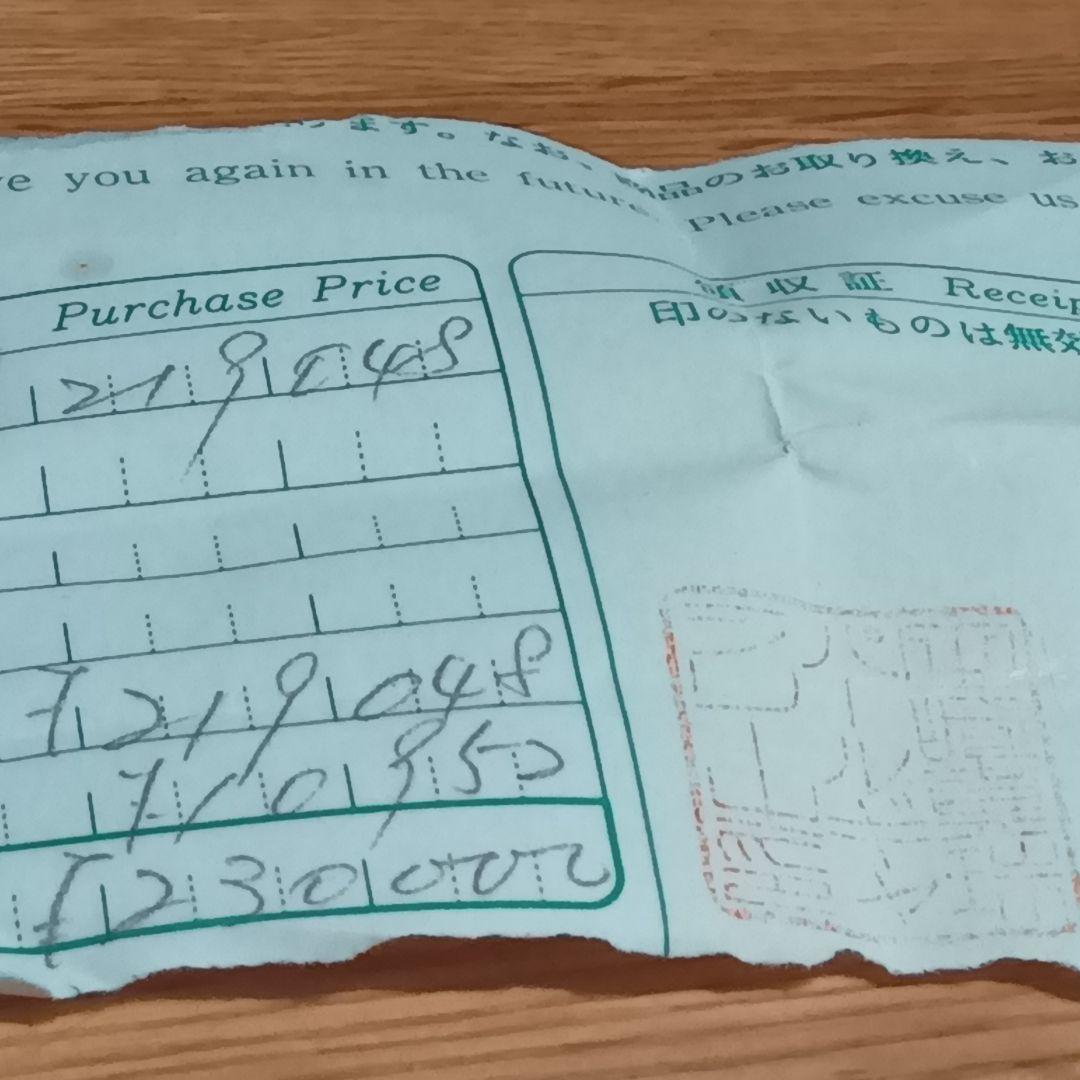 ます。なお、商品のお取り換え、お
ve you again in the future. Please excuse us
Purchase Price
219,048
¥219,048
¥10,950
¥230,000
領収証 Receip
印のないものは無効